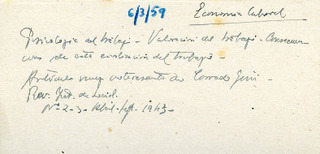 6/3/59
Economía laboral
Psicología del trabajo - Valoración del trabajo - Consecuen
cias de esta evaluación del trabajo -
Artículo muy interesante de Corrado Gini -
Rev. Int. de Sociol.
Nº 2-3 - Abril-Sept. 1943 -